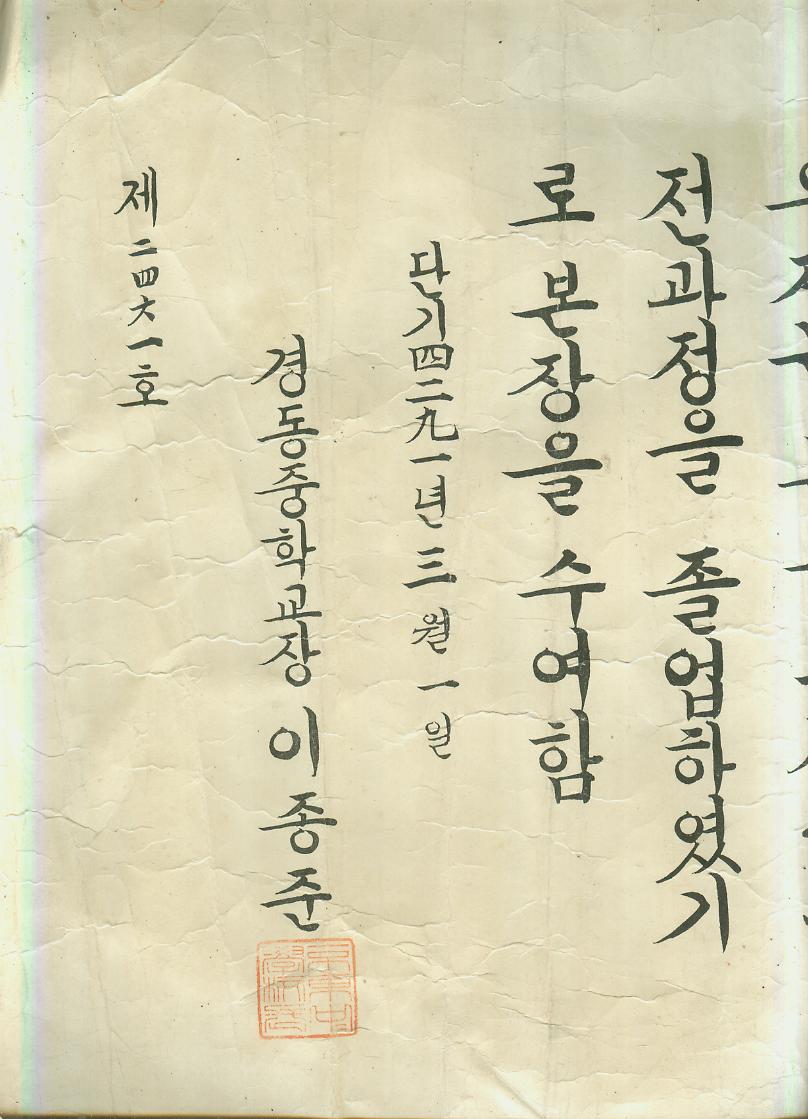 전과정을 졸업하였기
로 본장을 수여함
단기四二九一년 三월 一일
경동중학교장 이종준
제二四六一호